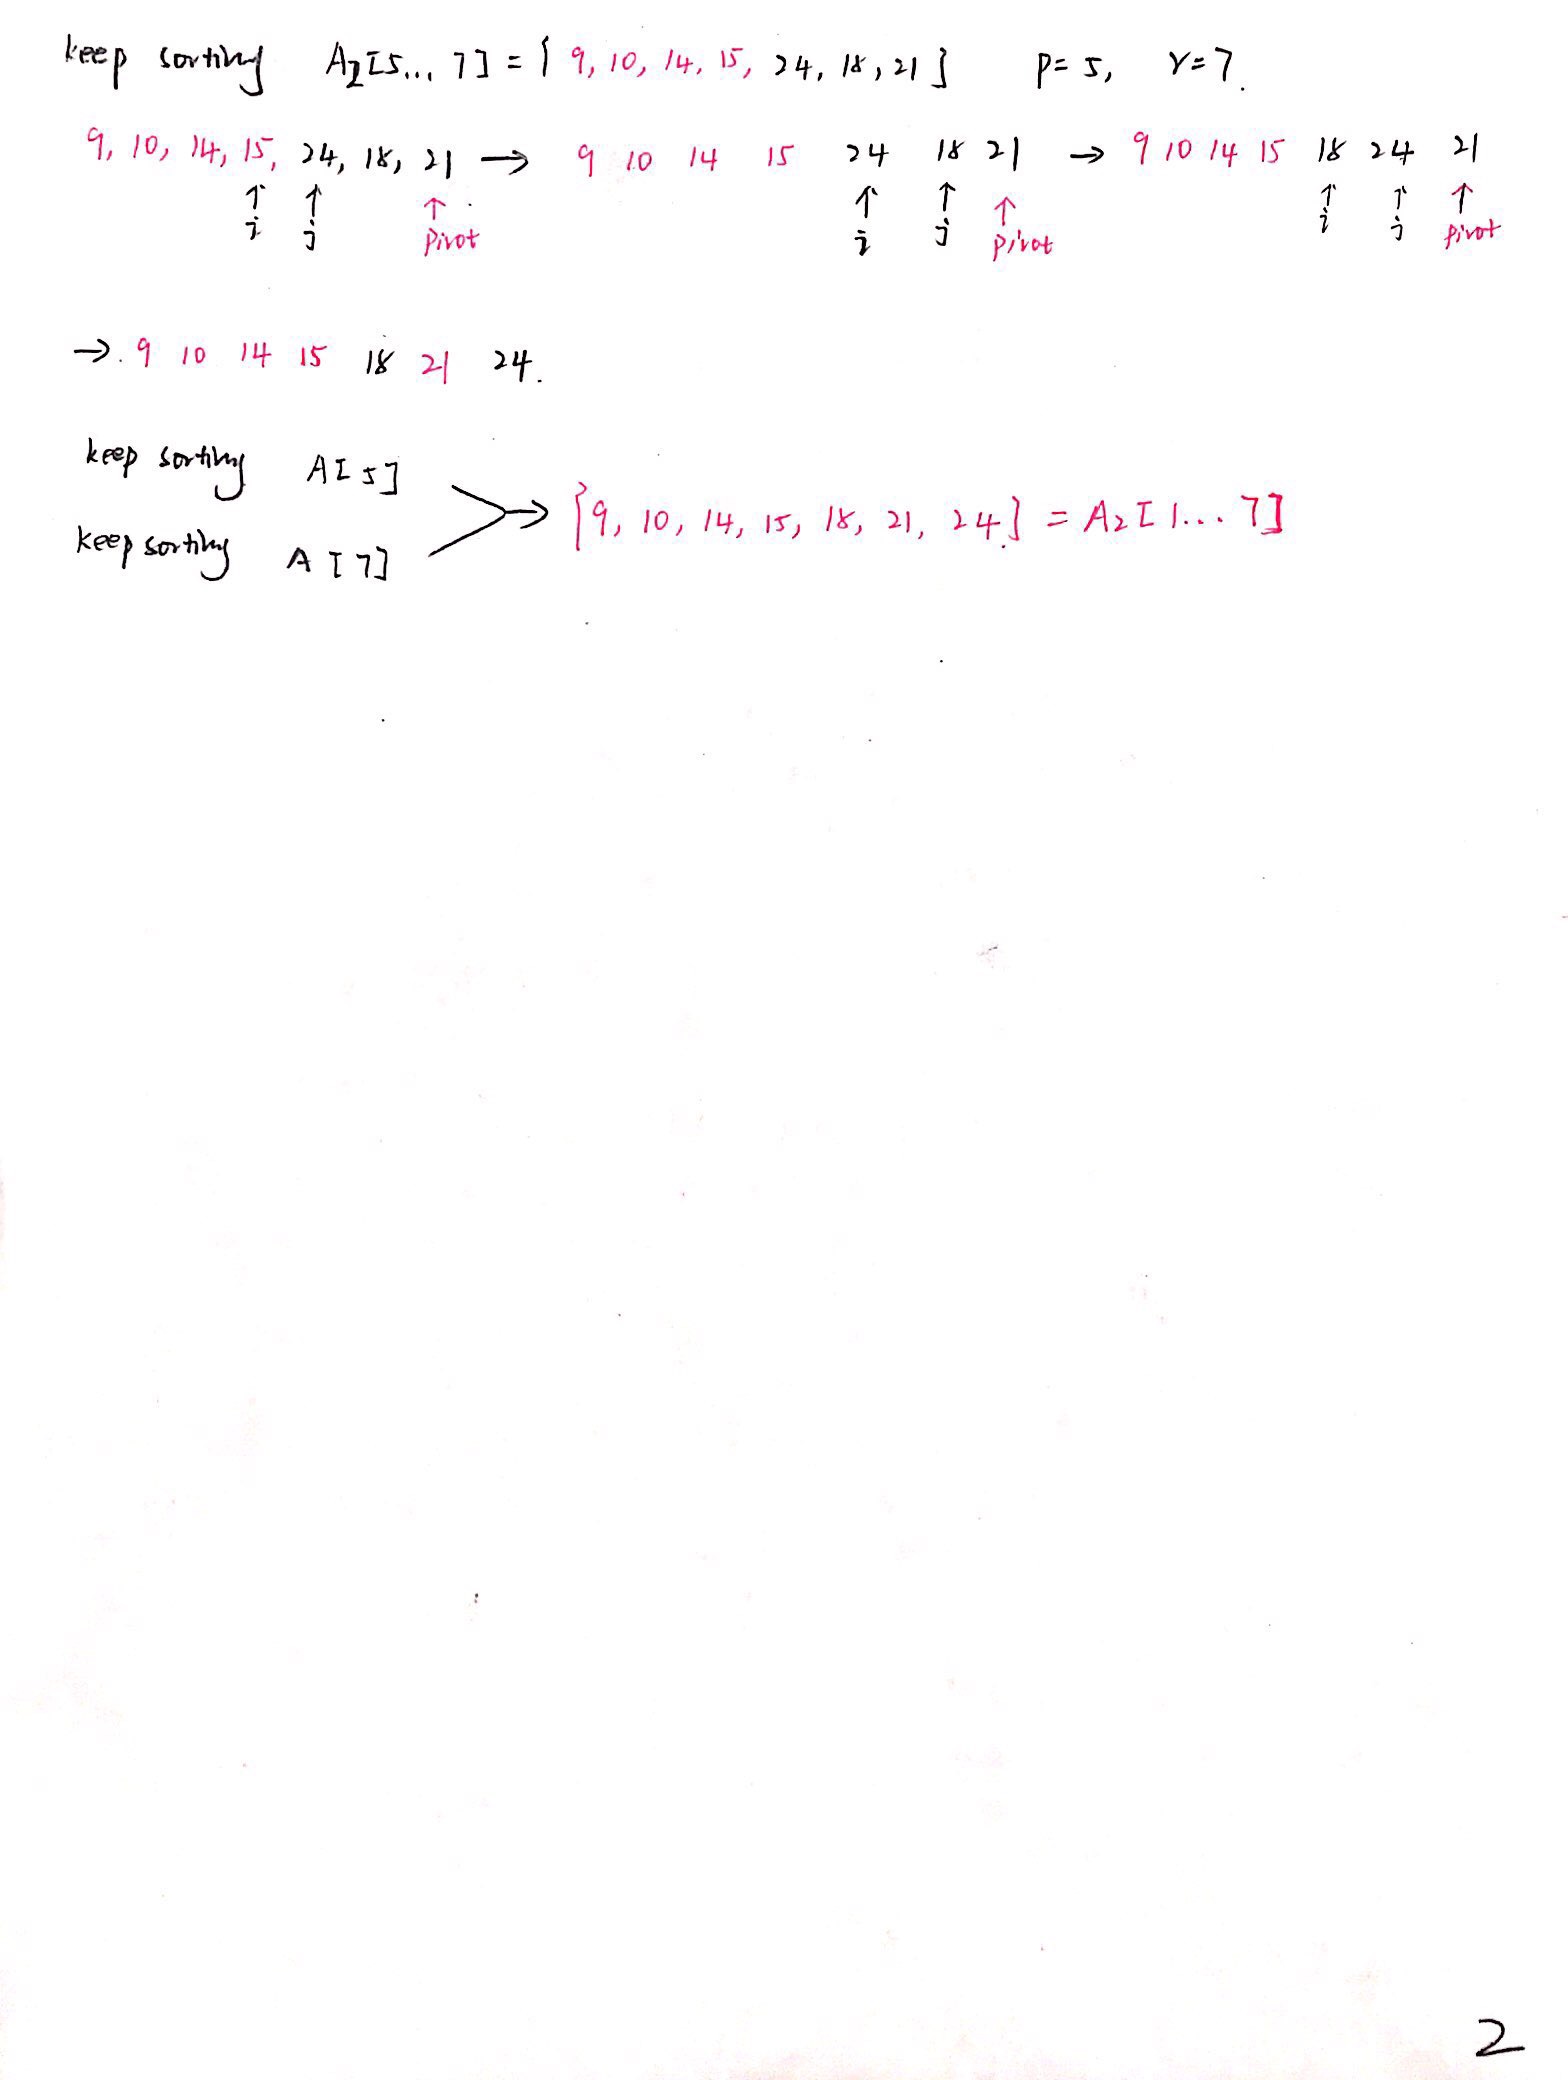 keep sorting A2[5... 7] = { 9, 10, 14, 15, 24, 18, 21 } p= 5, r=7.
9, 10, 14, 15, 24, 18, 21 → 9 10 14 15 24 18 21 → 9 10 14 15 18 24 21
↑ ↑ ↑ ↑ ↑ ↑ ↑ ↑ ↑
i j pivot i j pivot i j pivot
→ 9 10 14 15 18 21 24.
keep sorting A[5]
→ {9, 10, 14, 15, 18, 21, 24} = A2[1... 7]
keep sorting A[7]
2